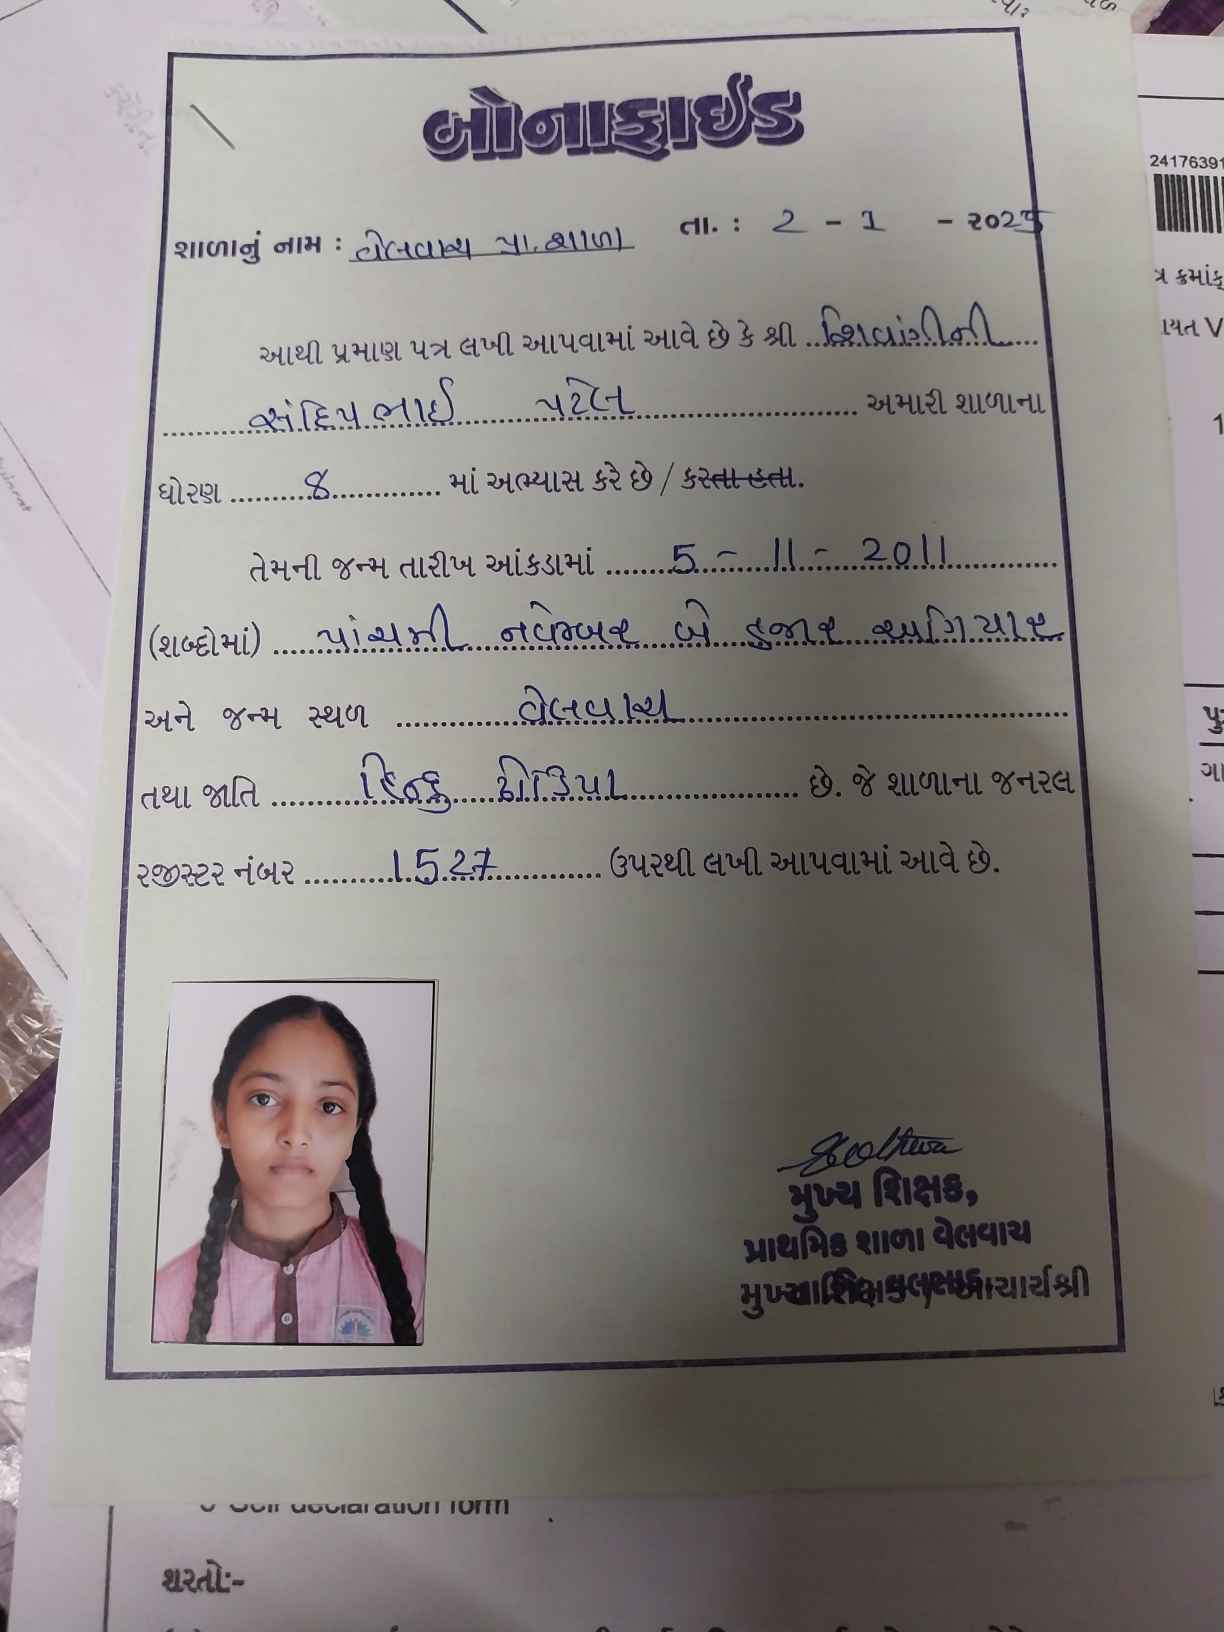 બોનાફાઈડ
શાળાનું નામ : વેલવાચ પ્રા. શાળા તા. : 2 - 1 - ૨૦૨5
24176391
આથી પ્રમાણ પત્ર લખી આપવામાં આવે છે કે શ્રી શિવાંગીની
સંદિપભાઈ પટેલ અમારી શાળાના
ધોરણ 8 માં અભ્યાસ કરે છે / કરતા હતા.
તેમની જન્મ તારીખ આંકડામાં 5 - 11 - 2011
(શબ્દોમાં) પાંચમી નવેમ્બર બે હજાર અગિયાર
અને જન્મ સ્થળ વેલવાચ
તથા જાતિ હિન્દુ ધોડિયા છે. જે શાળાના જનરલ
રજીસ્ટર નંબર 1527 ઉપરથી લખી આપવામાં આવે છે.
મુખ્ય શિક્ષક,
પ્રાથમિક શાળા વેલવાચ
મુખ્ય શિક્ષક / આચાર્યશ્રી
Self declaration form
શરતો:-